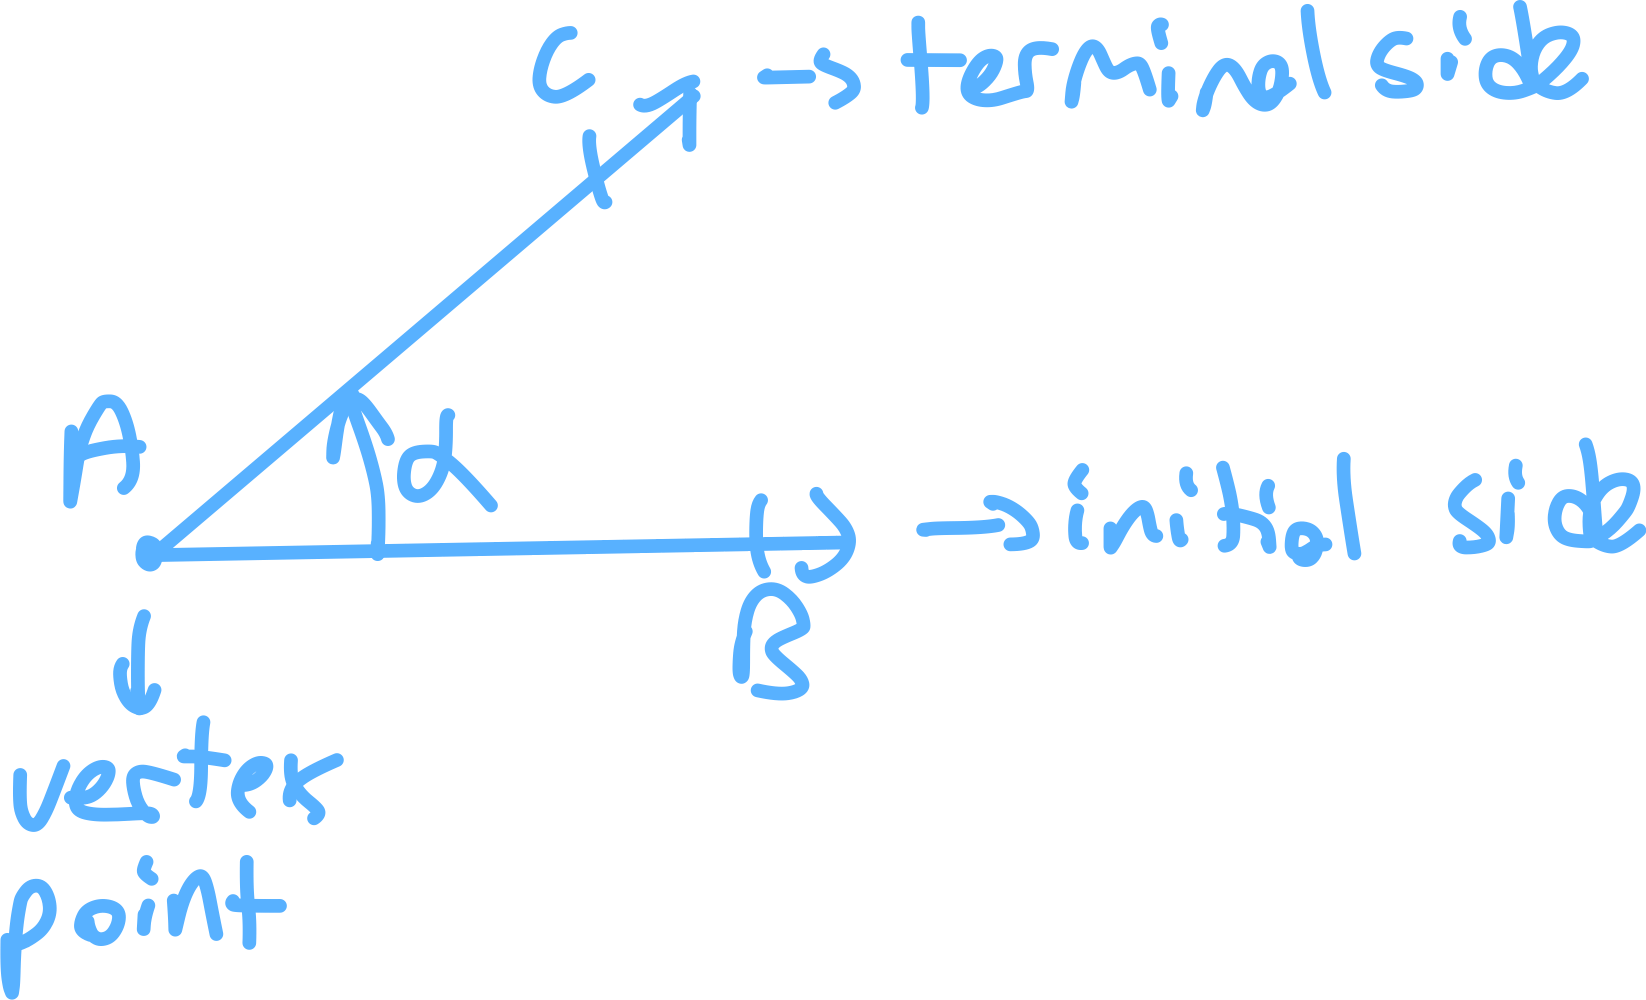 C → terminal side
A
α
→ initial side
B
vertex
point